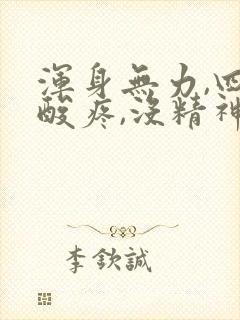 渾身無力,四
酸疼,沒精神
李欽誠